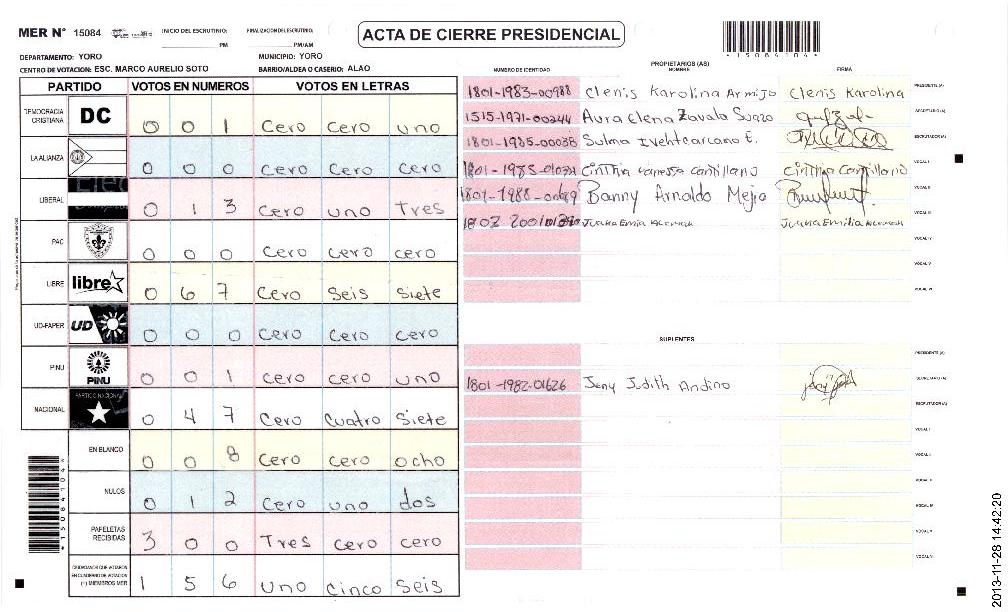 MER N° 15084
INICIO DEL ESCRUTINIO:
PM
FINALIZACION DEL ESCRUTINIO:
PM/AM
ACTA DE CIERRE PRESIDENCIAL
*15084104*
DEPARTAMENTO: YORO
MUNICIPIO: YORO
CENTRO DE VOTACION: ESC. MARCO AURELIO SOTO
BARRIO/ALDEA O CASERIO: ALAO
PARTIDO VOTOS EN NUMEROS VOTOS EN LETRAS
DEMOCRACIA CRISTIANA DC 0 0 1 Cero Cero uno
LA ALIANZA 0 0 0 Cero Cero Cero
LIBERAL 0 1 3 Cero uno Tres
PAC 0 0 0 Cero Cero cero
LIBRE libre 0 6 7 Cero Seis Siete
UD-FAPER UD 0 0 0 Cero Cero Cero
PINU PINU 0 0 1 Cero cero uno
NACIONAL PARTIDO NACIONAL 0 4 7 Cero Cuatro Siete
EN BLANCO 0 0 8 Cero cero ocho
NULOS 0 1 2 Cero uno dos
PAPELETAS RECIBIDAS 3 0 0 Tres cero cero
CIUDADANOS QUE VOTARON EN CUADERNO DE VOTACION (+) MIEMBROS MER 1 5 6 Uno Cinco Seis
*15084104*
PROPIETARIOS (AS)
NUMERO DE IDENTIDAD NOMBRE FIRMA
1801-1983-00988 Clenis Karolina Armijo Clenis Karolina PRESIDENTE (A)
1515-1971-00244 Aura Elena Zavala Suazo SECRETARIO (A)
1801-1985-00038 Sulma E. ESCRUTADOR (A)
Cinthia vanessa cantillano Cinthia Cantillano VOCAL I
Banny Arnoldo Mejia VOCAL II
Juana Juana Emilia VOCAL III
VOCAL IV
VOCAL V
VOCAL VI
SUPLENTES
PRESIDENTE (A)
1801-1982-01626 Jeny Judith Andino SECRETARIO (A)
ESCRUTADOR (A)
VOCAL I
VOCAL II
VOCAL III
VOCAL IV
VOCAL V
VOCAL VI
2013-11-28 14:42:20